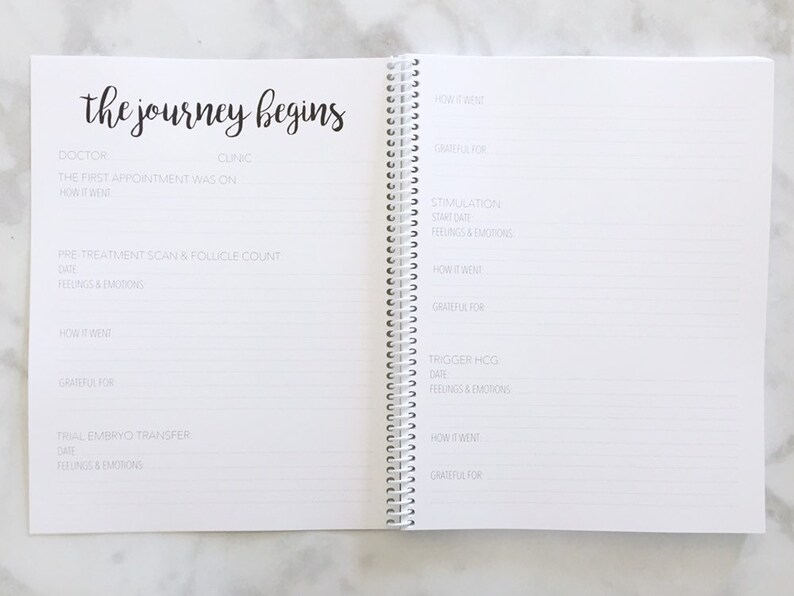 the journey begins
DOCTOR: CLINIC
THE FIRST APPOINTMENT WAS ON
HOW IT WENT:
PRE-TREATMENT SCAN & FOLLICLE COUNT
DATE
FEELINGS & EMOTIONS:
HOW IT WENT:
GRATEFUL FOR:
TRIAL EMBRYO TRANSFER:
DATE
FEELINGS & EMOTIONS:
HOW IT WENT:
GRATEFUL FOR:
STIMULATION:
START DATE:
FEELINGS & EMOTIONS:
HOW IT WENT:
GRATEFUL FOR:
TRIGGER HCG:
DATE:
FEELINGS & EMOTIONS:
HOW IT WENT:
GRATEFUL FOR: